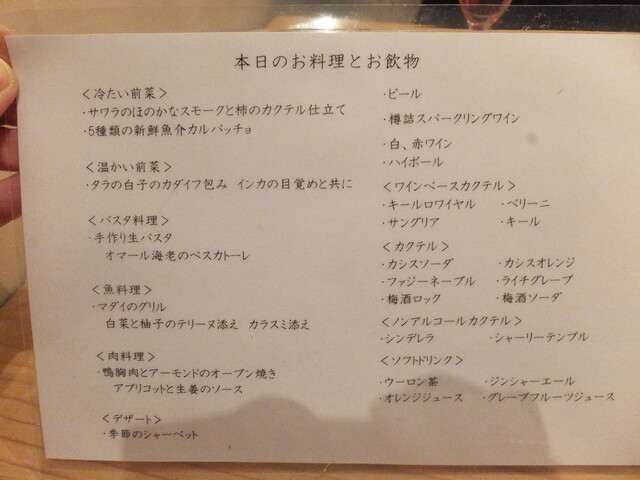 本日のお料理とお飲物
＜冷たい前菜＞
・サワラのほのかなスモークと柿のカクテル仕立て
・5種類の新鮮魚介カルパッチョ
＜温かい前菜＞
・タラの白子のカダイフ包み インカの目覚めと共に
＜パスタ料理＞
・手作り生パスタ
オマール海老のペスカトーレ
＜魚料理＞
・マダイのグリル
白菜と柚子のテリーヌ添え カラスミ添え
＜肉料理＞
・鴨胸肉とアーモンドのオーブン焼き
アプリコットと生姜のソース
＜デザート＞
・季節のシャーベット
・ビール
・樽詰スパークリングワイン
・白、赤ワイン
・ハイボール
＜ワインベースカクテル＞
・キールロワイヤル ・ベリーニ
・サングリア ・キール
＜カクテル＞
・カシスソーダ ・カシスオレンジ
・ファジーネーブル ・ライチグレープ
・梅酒ロック ・梅酒ソーダ
＜ノンアルコールカクテル＞
・シンデレラ ・シャーリーテンプル
＜ソフトドリンク＞
・ウーロン茶 ・ジンシャーエール
・オレンジジュース ・グレープフルーツジュース